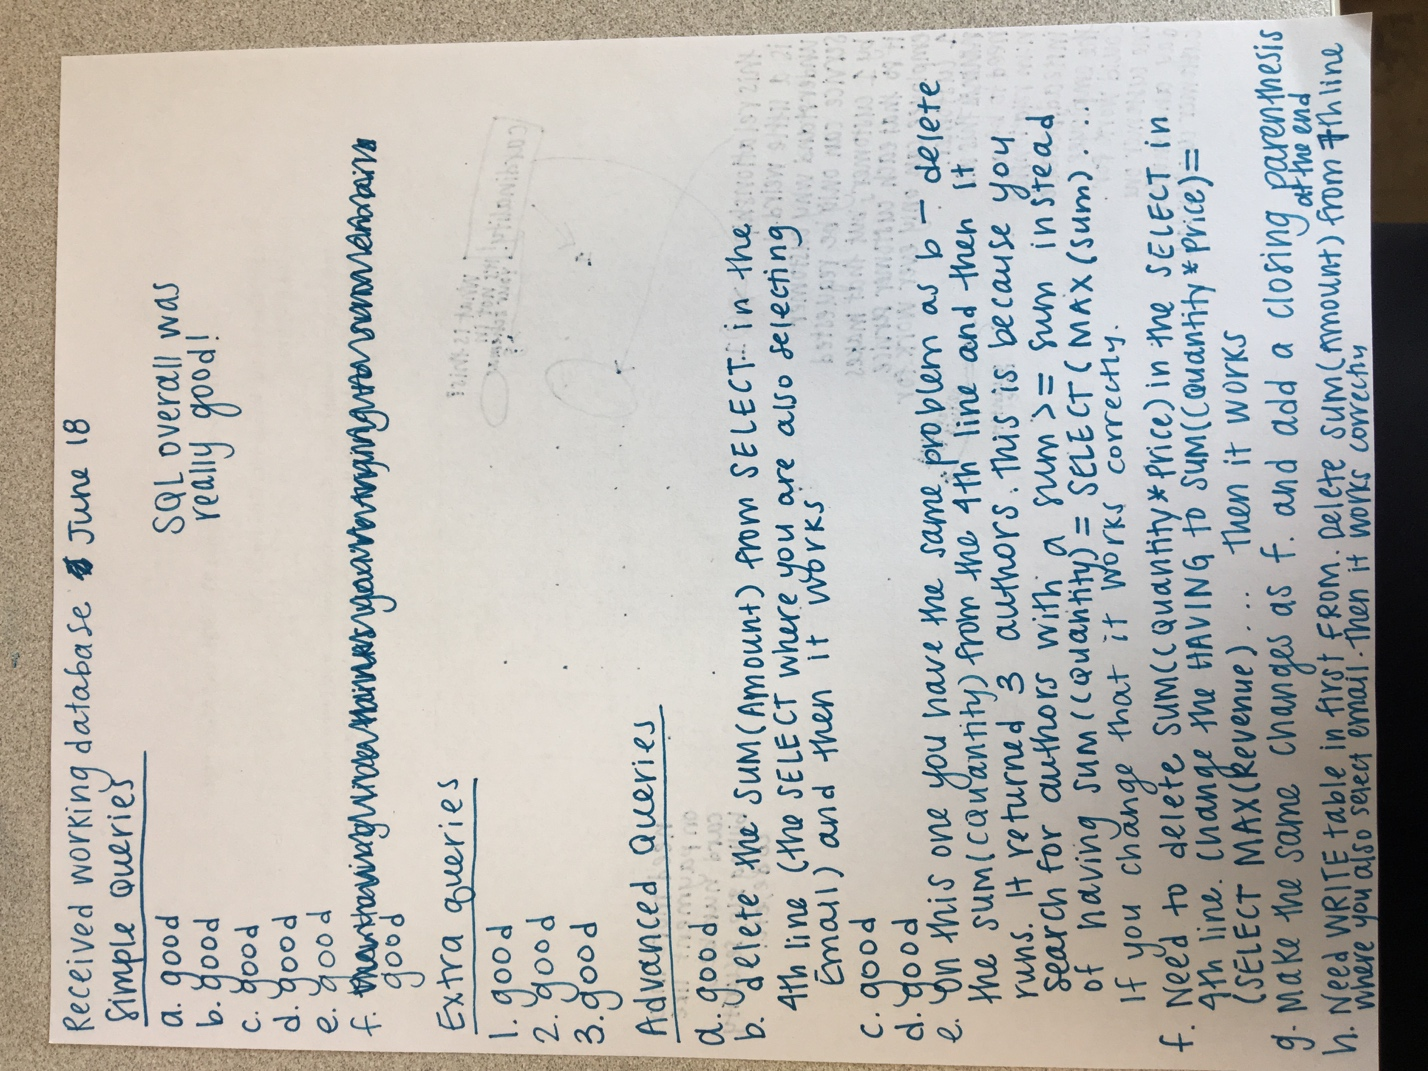 Received working database June 18
Simple Queries
SQL overall was
really good!
a. good
b. good
c. good
d. good
e. good
f.
good
Extra queries
1. good
2. good
3. good
Advanced Queries
a. good
b. delete the SUM(Amount) from SELECT... in the
4th line (the SELECT where you are also selecting
Email) and then it works
c. good
d. good
e. On this one you have the same problem as b - delete
the sum(Quantity) from the 4th line and then it
runs. It returned 3 authors. This is because you
search for authors with a sum >= sum instead
of having SUM((Quantity) = SELECT(MAX(Sum)...
If you change that it works correctly.
f. Need to delete SUM((Quantity*Price) in the SELECT in
4th line. Change the HAVING to SUM((Quantity*Price) =
(SELECT MAX(Revenue).... Then it works
g. Make the same changes as f. and add a closing parenthesis
at the end
h. Need WRITE table in first FROM. Delete SUM(Amount) from 7th line
where you also select email. Then it works correctly